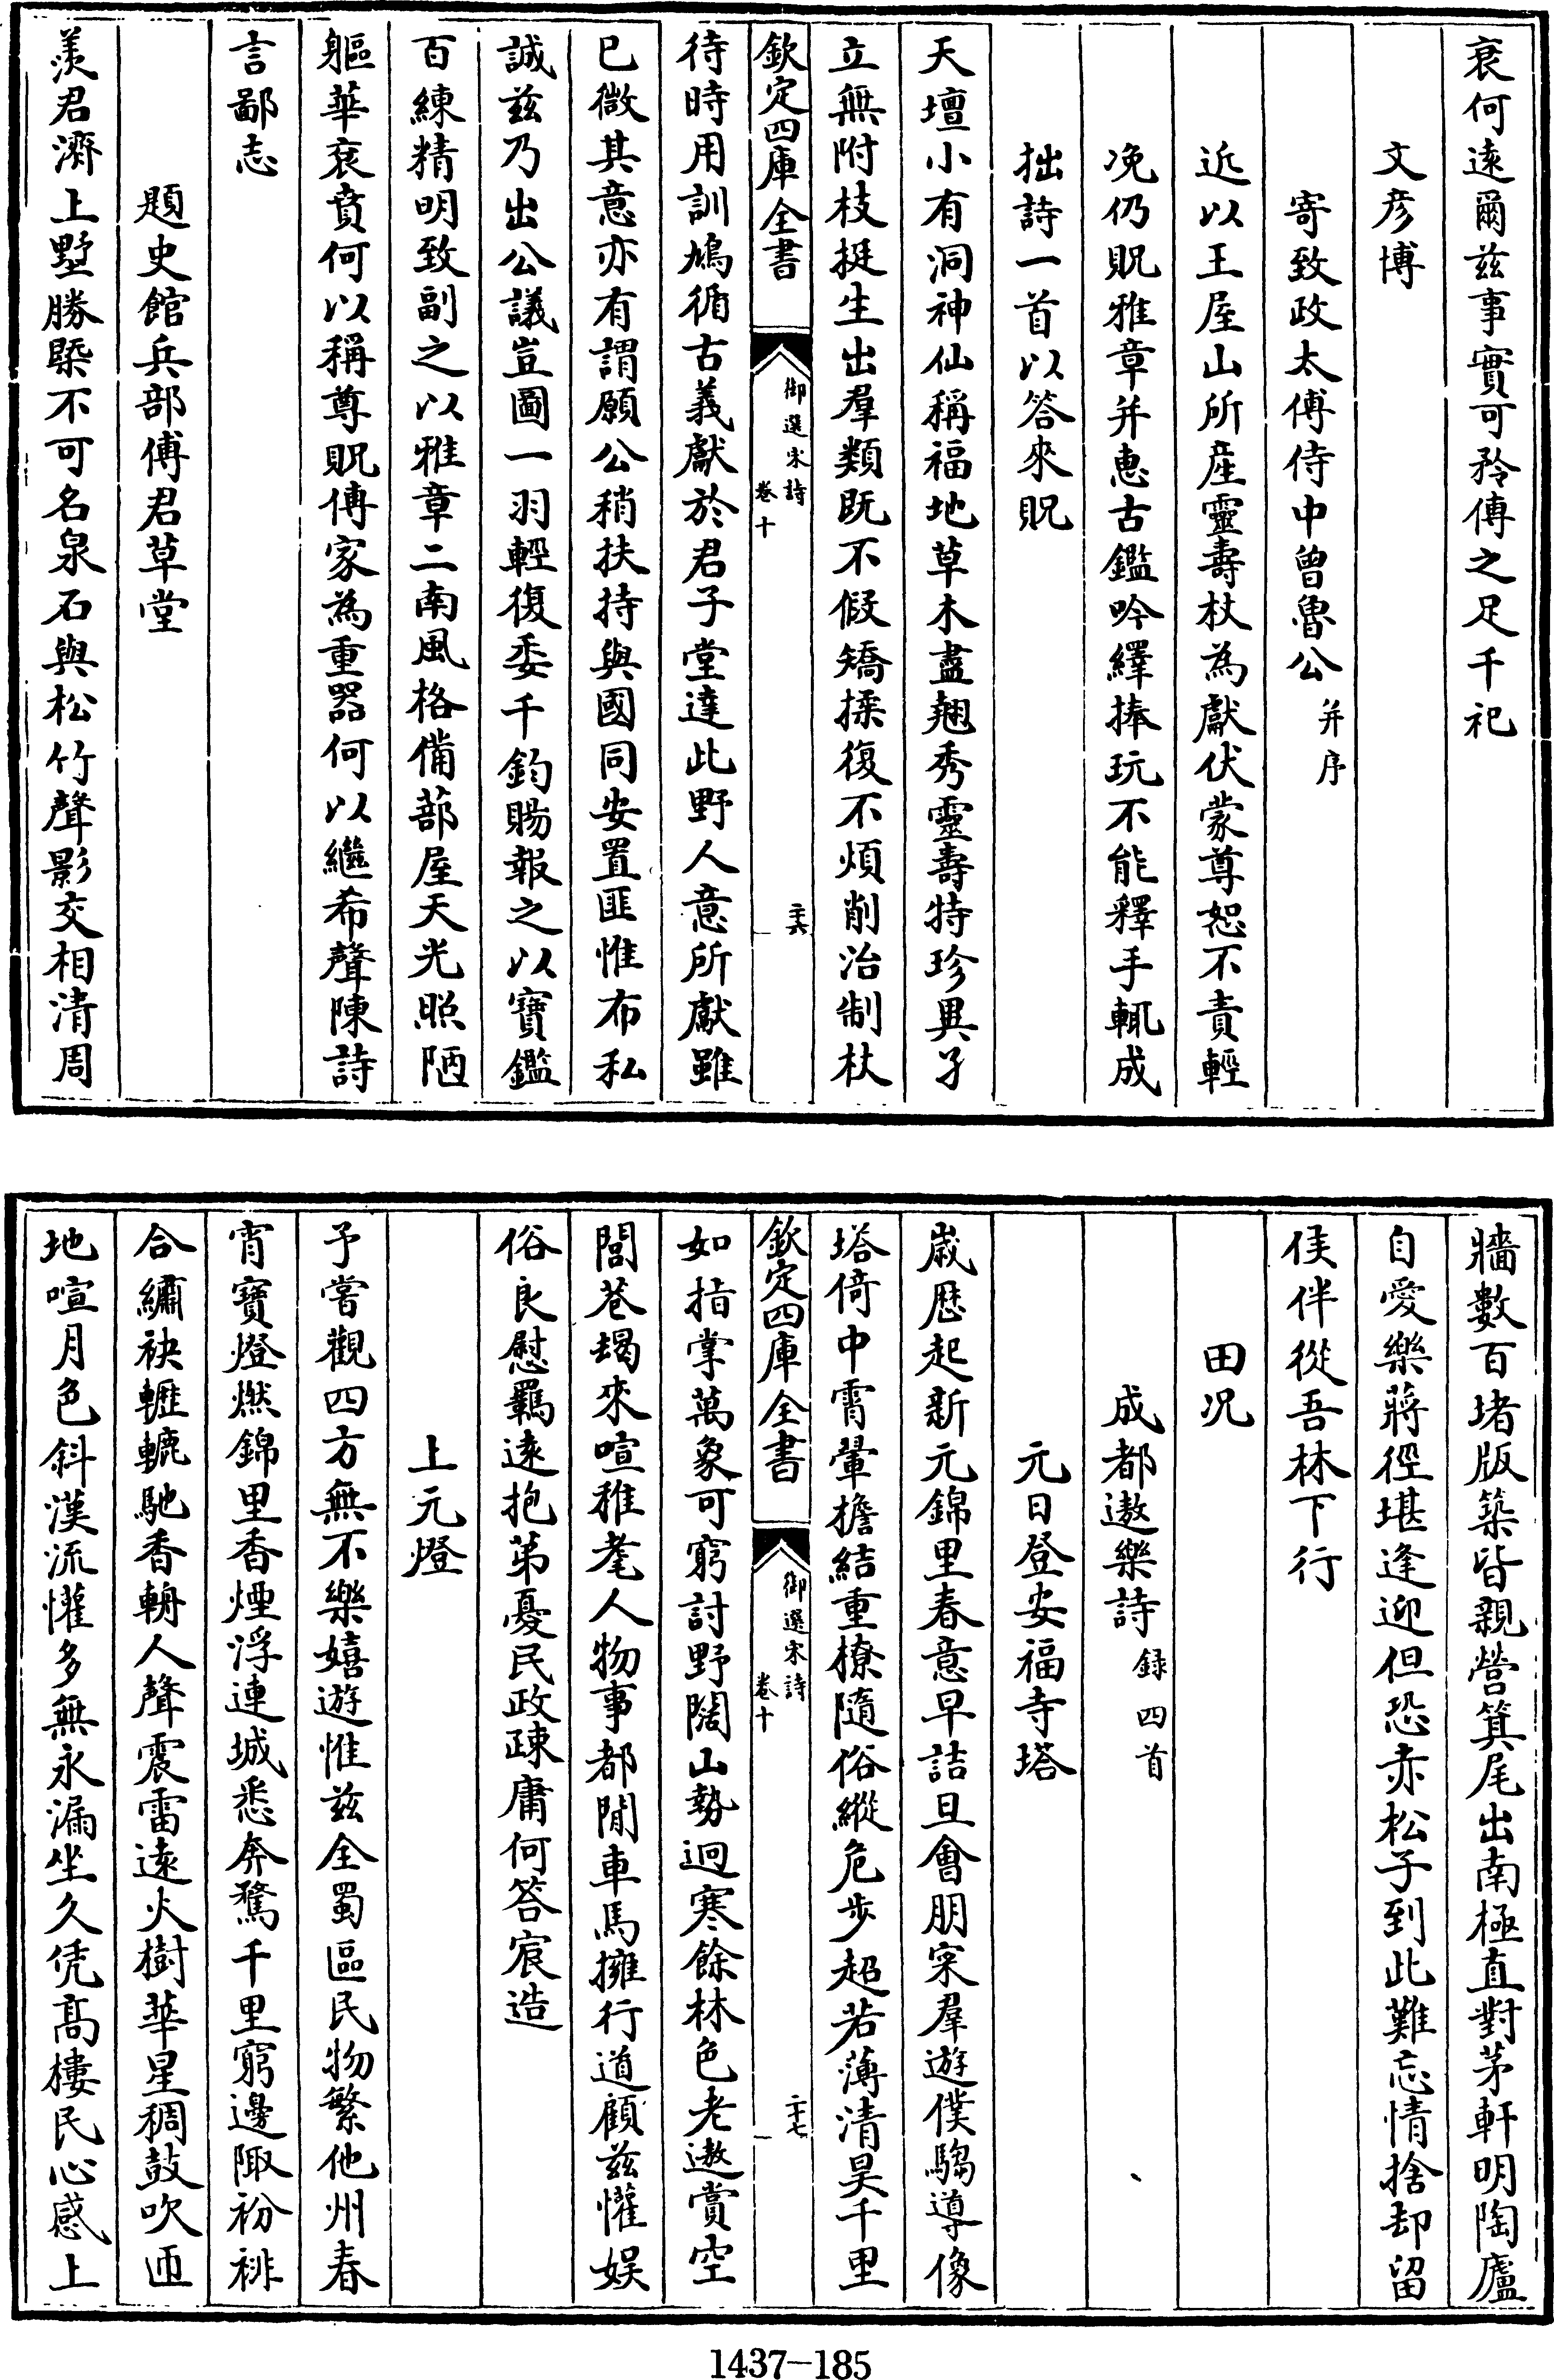 衰何遠爾兹事實可矜傳之足千祀
文彦博
寄致政太傅侍中曾魯公并序
近以王屋山所産靈壽杖為獻伏蒙尊恕不責輕
浼仍貺雅章并惠古鑑吟繹捧玩不能釋手輒成
拙詩一首以答來貺
天壇小有洞神仙稱福地草木盡翹秀靈壽特珍異孑
立無附枝挺生出羣類既不假矯揉復不煩削治制杖
欽定四庫全書
御選宋詩
卷十
二十六
待時用訓鳩循古義獻於君子堂達此野人意所獻雖
已微其意亦有謂願公稍扶持與國同安置匪惟布私
誠兹乃出公議豈圖一羽輕復委千鈞賜報之以寶鑑
百練精明致副之以雅章二南風格備蔀屋天光照陋
軀華衮賁何以稱尊貺傳家為重器何以繼希聲陳詩
言鄙志
題史館兵部傅君草堂
羡君濟上墅勝槩不可名泉石與松竹聲影交相清周
牆數百堵版築皆親營箕尾出南極直對茅軒明陶廬
自愛樂蔣徑堪逢迎但恐赤松子到此難忘情捨却留
侯伴從吾林下行
田况
成都遨樂詩録四首
元日登安福寺塔
歲歴起新元錦里春意早詰旦會朋寀羣遊僕騶導像
塔倚中霄翬檐結重橑隨俗縱危步超若薄清昊千里
欽定四庫全書
御選宋詩
卷十
二十七
如指掌萬象可窮討野闊山勢迥寒餘林色老遨賞空
閭巷朅來喧稚耄人物事都閒車馬擁行道顧兹懽娱
俗良慰羈遠抱第憂民政疎庸何答宸造
上元燈
予嘗觀四方無不樂嬉遊惟兹全蜀區民物繁他州春
宵寶燈燃錦里香煙浮連城悉奔騖千里窮邊陬衯裶
合繡袂轣轆馳香輈人聲震雷遠火樹華星稠鼓吹匝
地喧月色斜漢流懽多無永漏坐久凭髙樓民心感上
1437—185